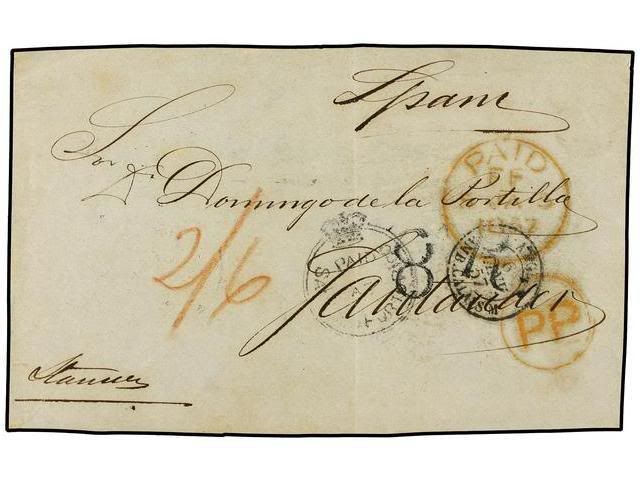 Spain
Sor Dn
Domingo de la Portilla
Santander
2/6
PAID
PAID
8
PP
Steamer